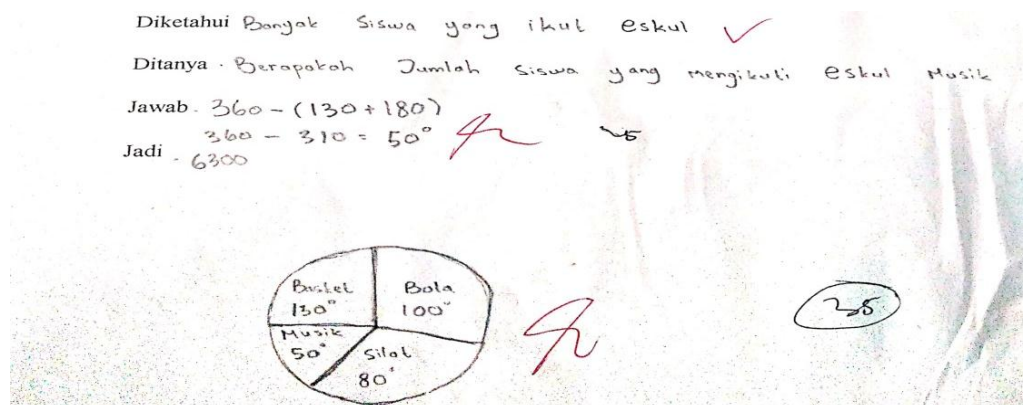 Diketahui Banyak Siswa yang ikut eskul
Ditanya . Berapakah Jumlah siswa yang mengikuti eskul Musik
Jawab . 360 - (130 + 180)
360 - 310 = 50°
Jadi . 6300
Basket
130°
Bola
100°
Musik
50°
Silat
80°